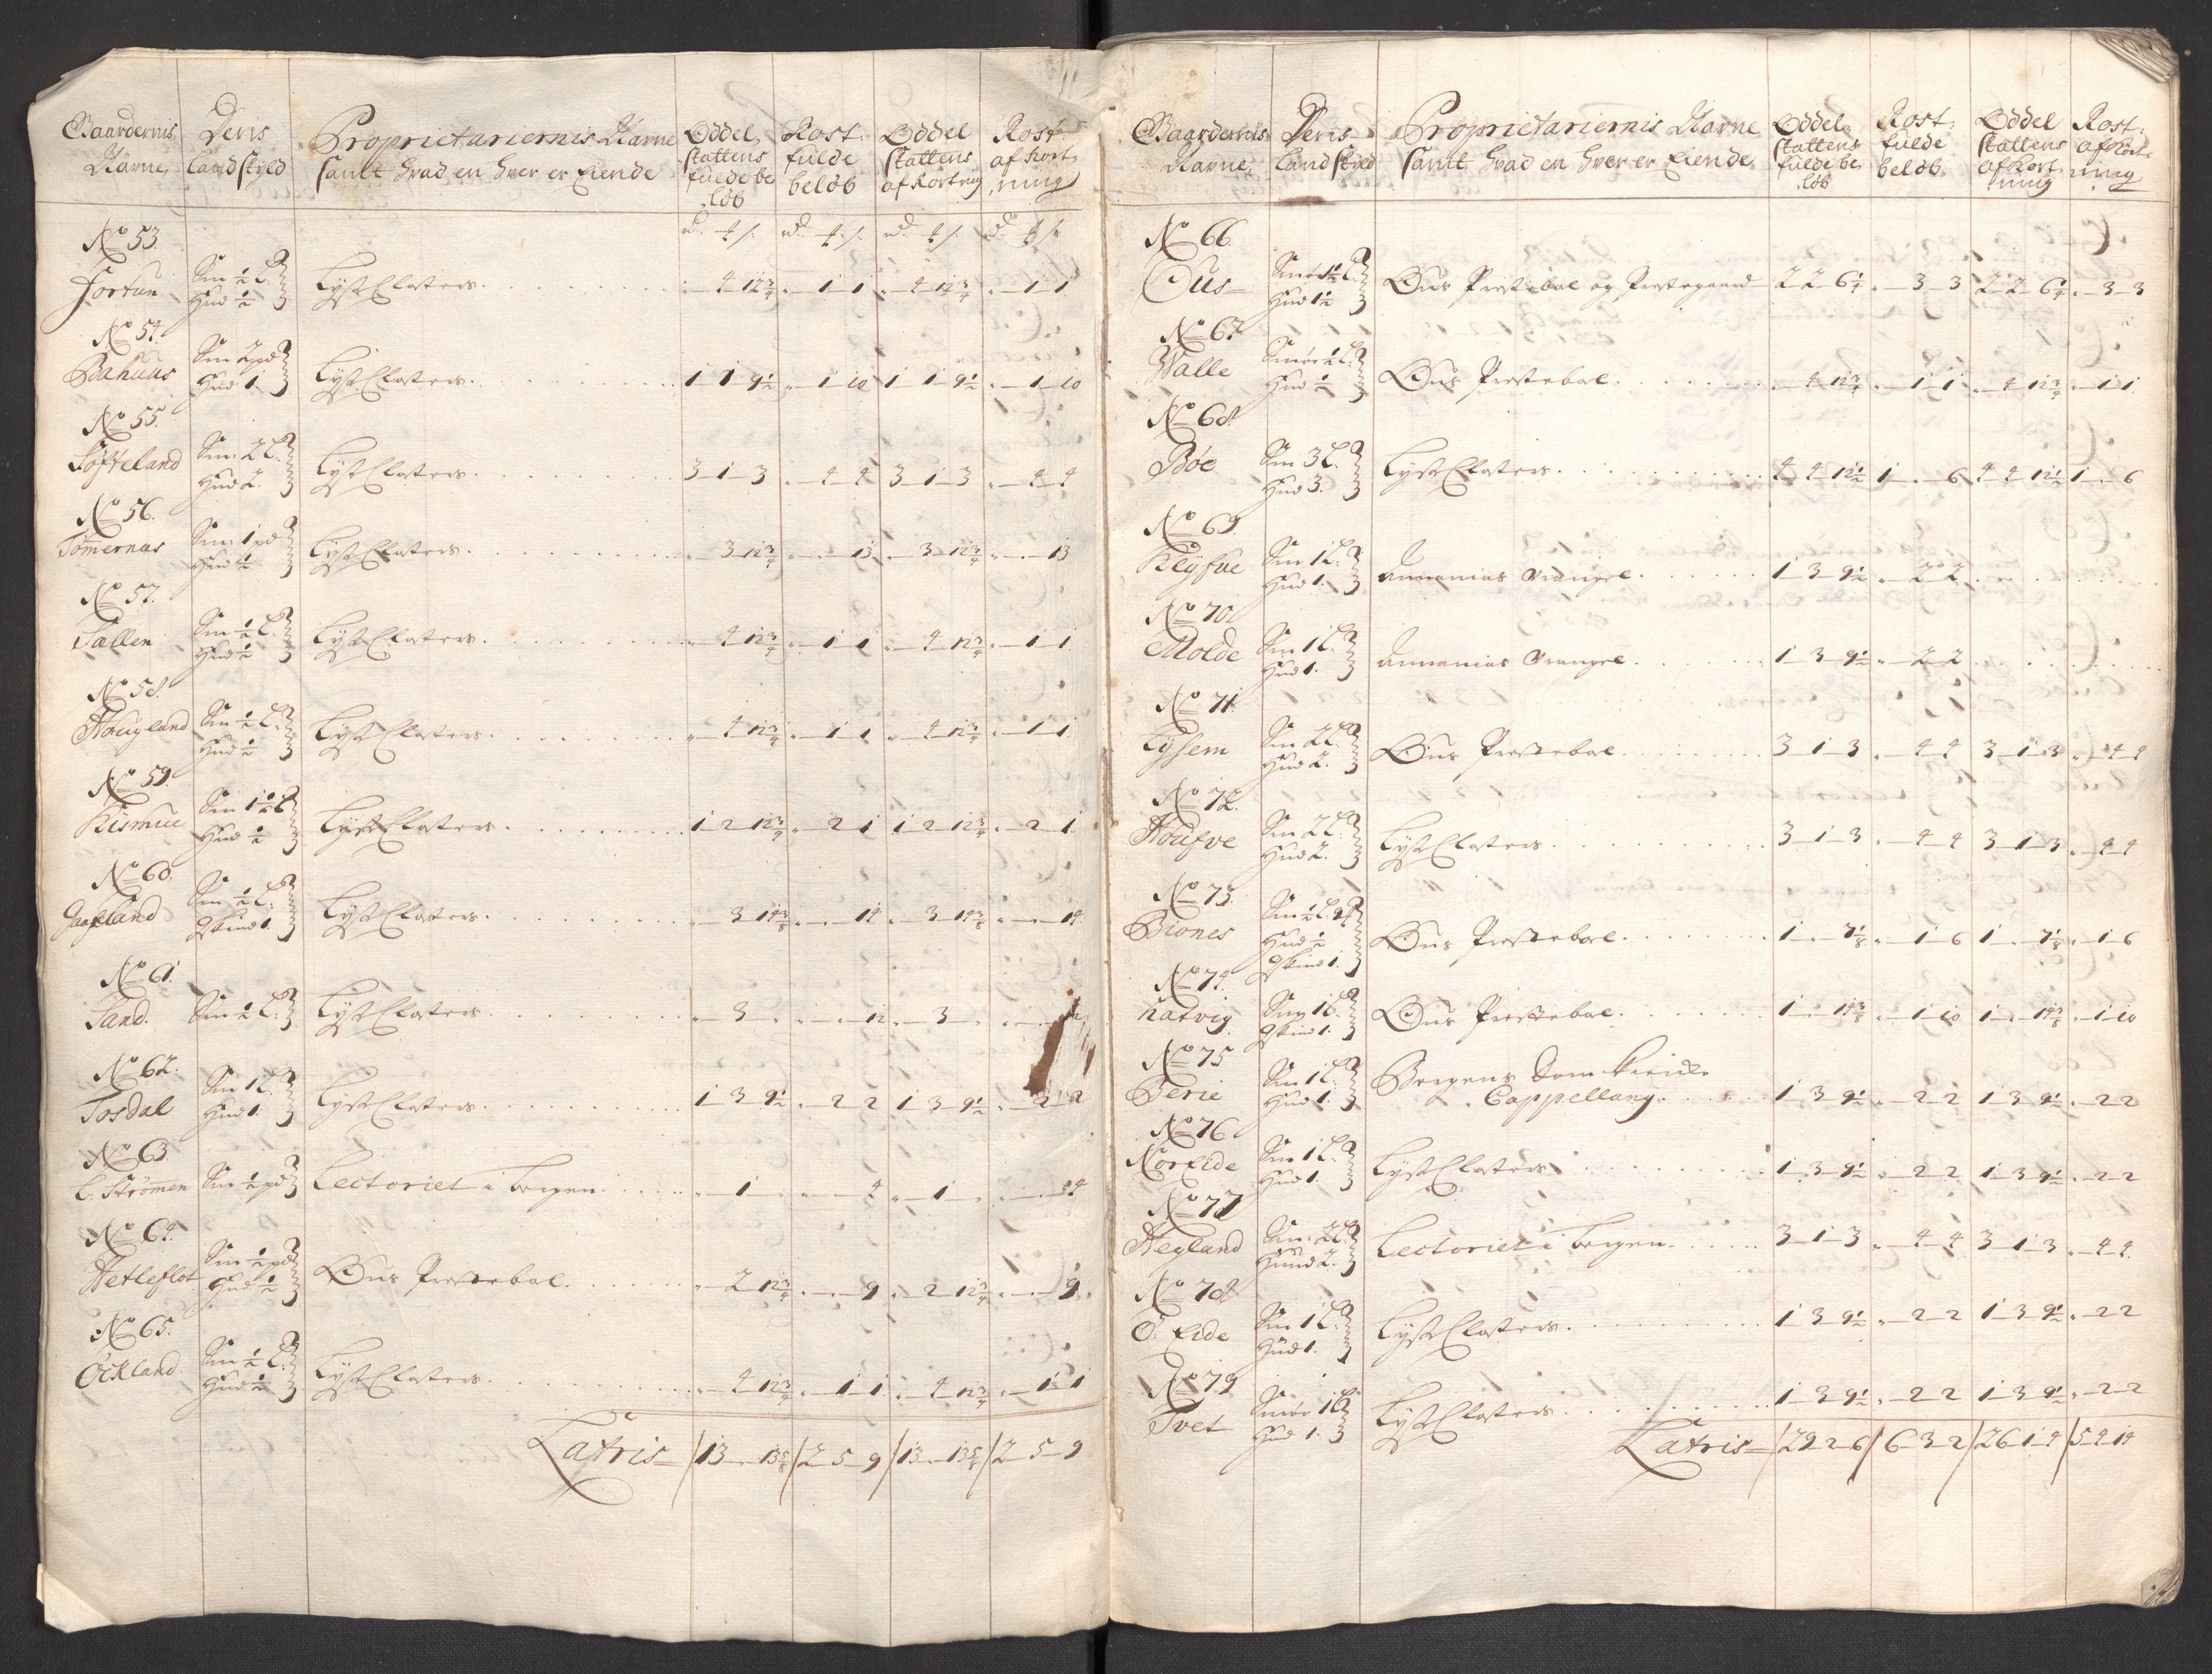 Gaardernis Navne,
Deris Landskyld
Proprietariernis Navne samt hvad en hver er Eiende
Oddel, skattens fulde be løb
Rost: fulde beløb
Oddel skattens afkortnig
Rost afkort, ning
rd. ₻ s. rd. ₻ s. rd. ₻ s. rd. ₻ s.
No 53.
Fortun Sm ½ L. Hud ½ Lyse Closters . . . " 4 12¾ " 1 1 " 4 12¾ " 1 1
No 54.
Bahuus Sm 2 pd Hud 1. Lyse Closters . . . 1 1 9½ " 1 10 1 1 9½ " 1 10
No 55.
Søfteland Sm: 2 L. Hud 2. Lyse Closters . . . 3 1 3 " 4 4 3 1 3 " 4 4
No 56.
Tømernæs Sm: 1 pd Hud ½ Lyse Closters . . . " 3 12¾ " " 13 " 3 12¾ " " 13
No 57.
Sællen Sm ½ L. Hud ½ Lyse Closters . . . " 4 12¾ " 1 1 " 4 12¾ " 1 1
No 58.
Hougland Sm ½ L. Hud ½ Lyse Closters . . . " 4 12¾ " 1 1 " 4 12¾ " 1 1
No 59.
Kismul Sm 1½ L Hud ½ Lyse Closters . . . 1 2 12¾ " 2 1 1 2 12¾ " 2 1
No 60.
Sm ½ L. gskind 1. Lyse Closters . . . " 3 14⅜ " " 14 " 3 14⅜ " " 14
No 61.
Sand. Sm ½ L. Lyse Closters . . . " 3 " " " 12 " 3 "
No 62.
Tosdal Sm 1 L. Hud 1. Lyse Closters . . . 1 3 9½ " 2 2 1 3 9½ " 2 2
No 63
L. Strømen Sm ½ pd Lectoriet i bergen . . . " 1 " " " 4 " 1 " " " 4
No 64.
Hetleflot Sm ½ pd Hud ½ Øus Prestebol . . . " 2 12¾ " " 9 " 2 12¾ " " 9
No 65.
Øckland Sm ½ L. Hud ½ Lyse Closters . . . " 4 12¾ " 1 1 " 4 12¾ " 1 1
Latris 13 " 13⅝ 2 5 9 13 " 13⅝ 2 5 9
Gaardernis Navne,
Deris Landskyld
Proprietariernis Navne samt hvad en hver er Eiende
Oddel, skattens fulde be, løb
Rost: fulde beløb.
Oddel skattens afkort ning
Rost: afkort, ning
No 66.
Ous Smør 1½ L. Hud 1½ Øus Prestebol og Prestegaard 2 2 6¼ " 3 3 2 2 6¼ " 3 3
No 67.
Walle Smør ½ L. Hud ½ Øus Prestebol . . . " 4 12¾ " 1 1 " 4 12¾ " 1 1
No 68.
Bøe Sm 3 L. Hud 3. Lyse Closters . . . 4 4 12½ 1 " 6 4 4 12½ 1 " 6
No 69.
Røyfve Sm 1 L. Hud 1. Annanias Vrangel . . . 1 3 9½ " 2 2
No 70.
Molde Sm 1 L. Hud 1. Annanias Vrangel . . . 1 3 9½ " 2 2
No 71.
Lyssem Sm 2 L. Hud 2. Øus Prestebol . . . 3 1 3 " 4 4 3 1 3 " 4 4
No 72.
Houfve Sm 2 L. Hud 2. Lyse Closters . . . 3 1 3 " 4 4 3 1 3 " 4 4
No 73.
Biones Hud ½ gskind 1. Øus Prestebol . . . 1 " 7⅛ " 1 6 1 " 7⅛ " 1 6
No 74.
Hatvig Sm 1 L. gskind 1. Øus Prestebol . . . 1 " 14⅜ " 1 10 1 " 14⅜ " 1 10
No 75
Berie Sm 1 L. Hud 1. Bergens Dom kircke Cappellanj . . . 1 3 9½ " 2 2 1 3 9½ " 2 2
No 76
Nor Eide Sm 1 L. Hud 1. Lyse Closters . . . 1 3 9½ " 2 2 1 3 9½ " 2 2
No 77
Hegland Sm: 2 L. Hund 2. Lectoriet i bergen . . . 3 1 3 " 4 4 3 1 3 " 4 4
No 78
Ø. Eide Sm 1 L. Hud 1. Lyse Closters . . . 1 3 9½ " 2 2 1 3 9½ " 2 2
No 79
Tvet Smør 1 L Hud 1. Lyse Closters . . . 1 3 9½ " 2 2 1 3 9½ " 2 2
Latris 29 2 6 6 3 2 26 1 4 5 4 14